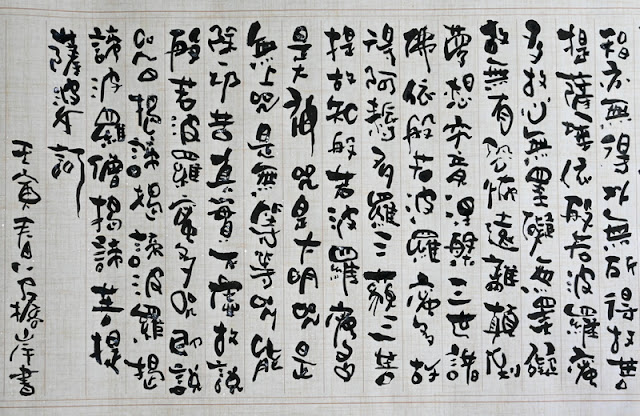 智亦無得以無所得故菩
提薩埵依般若波羅蜜
多故心無罣礙無罣礙
故無有恐怖遠離顛倒
夢想究竟涅槃三世諸
佛依般若波羅蜜多故
得阿耨多羅三藐三菩
提故知般若波羅蜜多
是大神咒是大明咒是
無上咒是無等等咒能
除一切苦真實不虛故說
般若波羅蜜多咒即說
咒曰揭諦揭諦波羅揭
諦波羅僧揭諦菩提
薩婆訶
壬寅春書